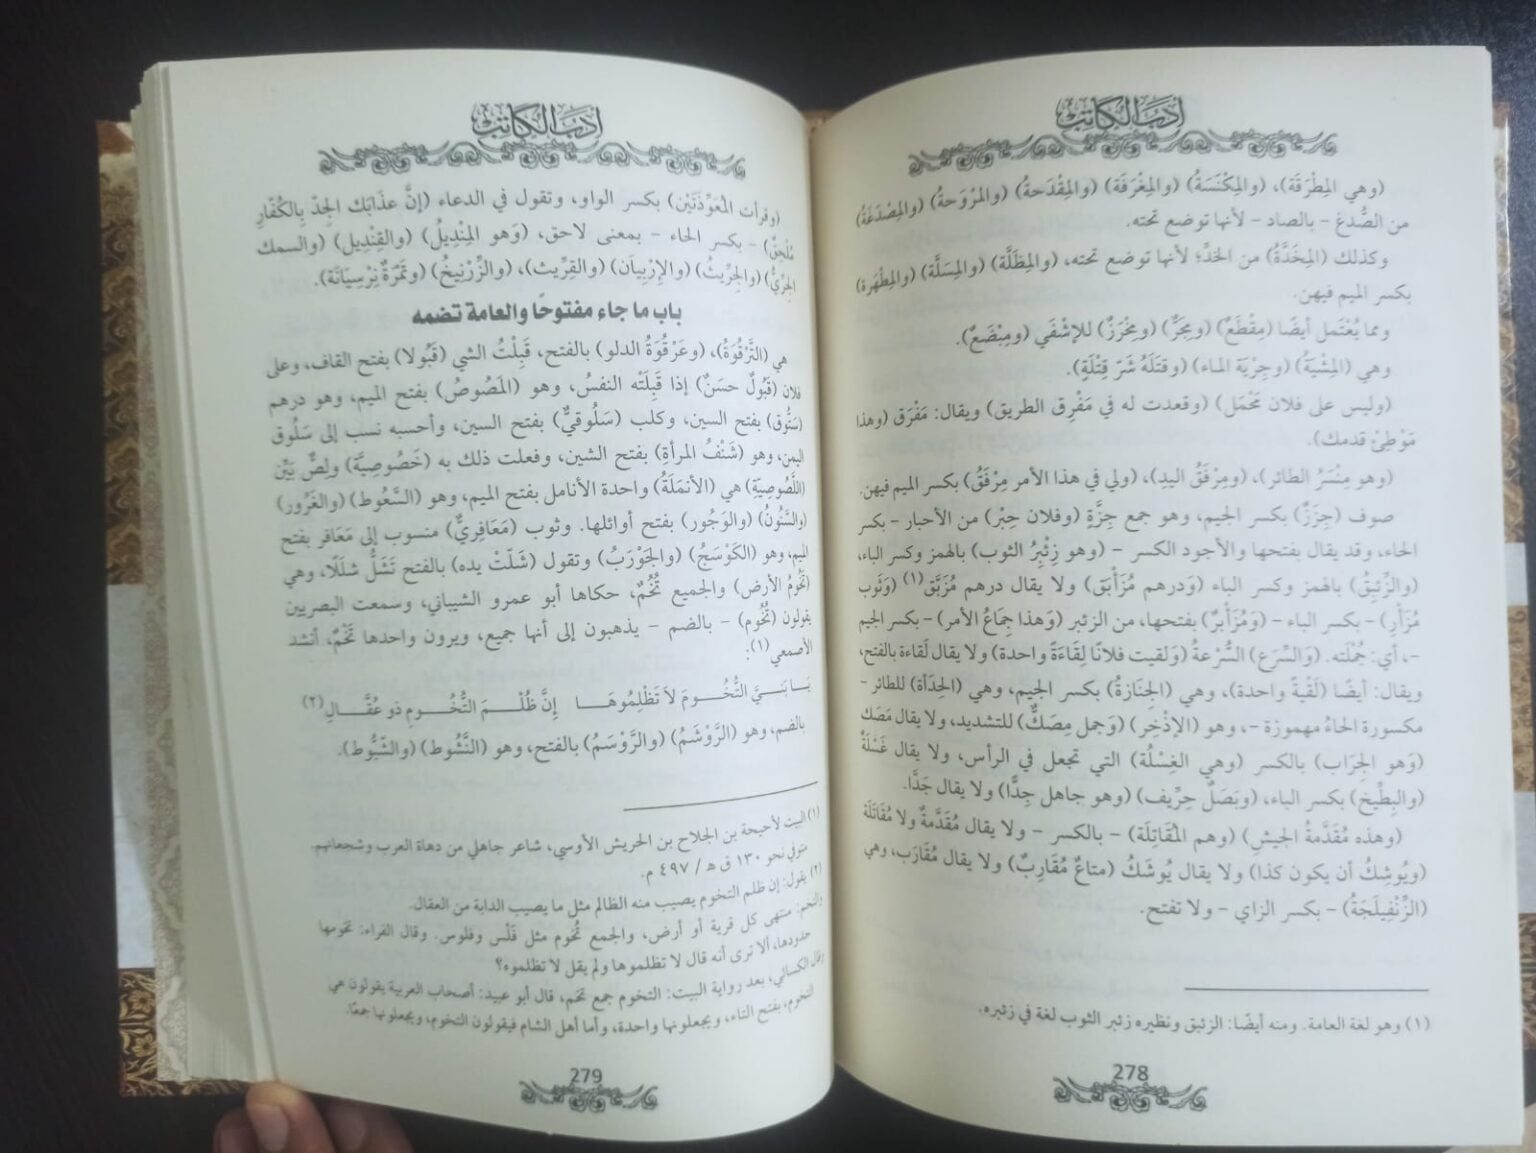 أدب الكاتب
(وهي المِطْرَقَة)، (والمِكْنَسَةُ) (والمِغْرَفَة) (والمِقْدَحةُ) (والمِرْوَحةُ) (والمِصْدَغَةُ)
من الصُّدغ – بالصاد – لأنها توضع تحته.
وكذلك (المِخَدَّةُ) من الخدِّ؛ لأنها توضع تحته، (والمِظَلَّة) (والمِسَلَّة) (والمِطْهَرة)
بكسر الميم فيهن.
ومما يُعْتَمل أيضًا (مِقْطَعٌ) (ومِجَزٌّ) (ومِخْرَزٌ) للإشْفَي (ومِبْضَعٌ).
وهي (المِشْيَةُ) (وجِرْيَة الماء) (وقتَلَهُ شَرّ قِتْلَةٍ).
(وليس على فلان مَحْمَل) (وقعدت له في مَفْرِق الطريق) ويقال: مَفْرَق (وهذا
مَوْطِئ قدمك).
(وهو مِنْسَرُ الطائر)، (ومِرْفَقُ اليدِ)، (ولي في هذا الأمر مِرْفَقٌ) بكسر الميم فيهن.
صوف (جِزَزٌ) بكسر الجيم، وهو جمع جِزَّةٍ (وفلان حِبْر) من الأحبار – بكسر
الحاء، وقد يقال بفتحها والأجود الكسر – (وهو زِئْبِرُ الثوب) بالهمز وكسر الباء،
(والزِّئبِقُ) بالهمز وكسر الباء (وَدرهم مُزَأْبَق) ولا يقال درهم مُزَبَّق(١) (وَثوب
مُزَأْبِر) – بكسر الباء – (ومُزَأْبَرٌ) بفتحها، من الزئبر (وَهذا جِمَاعُ الأمر) – بكسر الجيم
–، أي: جُمْلَته. (وَالسِّرَع) السُّرْعةُ (وَلقيت فلانًا لِقَاءَةً واحدة) ولا يقال لَقاءة بالفتح،
ويقال: أيضًا (لَقْيةً واحدة)، وهي (الجِنَازةُ) بكسر الجيم، وهي (الحِدَأة) للطائر –
مكسورة الحاءُ مهموزة –، وهو (الإذْخِر) (وَجمل مِصَكٌّ) للتشديد، ولا يقال مَصَك
(وَهو الجِرَاب) بالكسر (وهي الغِسْلَة) التي تجعل في الرأس، ولا يقال غَسْلَةٌ
(والبِطِّيخ) بكسر الباء، (وبَصَلٌ حِرِّيف) (وهو جاهل جِدًّا) ولا يقال جَدًّا.
(وهذه مُقَدِّمةُ الجيشِ) (وهم المُقَاتِلَة) – بالكسر – ولا يقال مُقَدَّمةٌ ولا مُقَاتَلَة
(ويُوشِكُ أن يكون كذا) ولا يقال يُوشَكُ (متاعٌ مُقَارِبٌ) ولا يقال مُقَارَب، وهي
(الزِّنْفِيلَجَةُ) – بكسر الزاي – ولا تفتح.
(١) وهو لغة العامة. ومنه أيضًا: الزئبق ونظيره زئبر الثوب لغة في زئبره.
278
أدب الكاتب
(وقرأت المُعَوِّذَتَيْن) بكسر الواو، وتقول في الدعاء (إنَّ عذابَك الجِدّ بِالكُفَّارِ
مُلْحِقٌ) – بكسر الحاء – بمعنى لاحق، (وَهو المِنْدِيلُ) (والقِنْدِيل) (والسمك
الجِرِّيُّ) (والجِرِّيثُ) (والإرْبِيَان) (والقِرِّيث)، (والزِّرْنِيخُ) (وتَمْرَةٌ نِرْسِيَانَة).
باب ما جاء مفتوحًا والعامة تضمه
هي (التَّرْقُوَةُ)، (وعَرْقُوَةُ الدلو) بالفتح، قَبِلْتُ الشي (قَبُولا) بفتح القاف، وعلى
فلان (قَبُولٌ حسَنٌ) إذا قَبِلَتْه النفسُ، وهو (المَصُوصُ) بفتح الميم، وهو درهم
(سَتُّوق) بفتح السين، وكلب (سَلُوقيٌّ) بفتح السين، وأحسبه نسب إلى سَلُوق
اليمن، وهو (شَنْفُ المرأةِ) بفتح الشين، وفعلت ذلك به (خَصُوصِيَّة) ولِصٌّ بَيِّن
(اللَّصُوصِيَّةِ) هي (الأنمَلَةُ) واحدة الأنامل بفتح الميم، وهو (السَّعُوط) (والغَرُور)
(والسَّنُونُ) (والوَجُور) بفتح أوائلها. وثوب (مَعَافِريٌّ) منسوب إلى مَعَافر بفتح
الميم، وهو (الكَوْسَجُ) (والجَوْرَبُ) وتقول (شَلَّتْ يده) بالفتح تَشَلُّ شللًا، وهي
(تَخُومُ الأرض) والجميع تُخُمٌ، حكاها أبو عمرو الشيباني، وسمعت البصريين
يقولون (تُخُوم) – بالضم – يذهبون إلى أنها جميع، ويرون واحدها تَخْمٌ، أنشد
الأصمعي(١):
يَــا بَنــيَّ التُّخُــومَ لاَ تَظْلِمُوهَــا إنَّ ظُلْــمَ التُّخُــومِ ذو عُقَّــالِ(٢)
بالضم، وهو (الرَّوْشَمُ) (والرَّوْسَمُ) بالفتح، وهو (النَّشُوط) (والشَّبُّوط).
(١) البيت لأحيحة بن الجلاح بن الحريش الأوسي، شاعر جاهلي من دهاة العرب وشجعانهم.
متوفي نحو ١٣٠ ق ه / ٤٩٧ م.
(٢) يقول: إن ظلم التخوم يصيب منه الظالم مثل ما يصيب الدابة من العقال.
والتخم: منتهى كل قرية أو أرض، والجمع تُخُوم مثل فَلْس وفلوس. وقال الفراء: تخومها
حدودها، ألا ترى أنه قال لا تظلموها ولم يقل لا تظلموه؟
وقال الكسائي، بعد رواية البيت: التخوم جمع تخم، قال أبو عبيد: أصحاب العربية يقولون هي
التخوم، بفتح التاء، ويجعلونها واحدة، وأما أهل الشام فيقولون التخوم، ويجعلونها جمعًا.
279